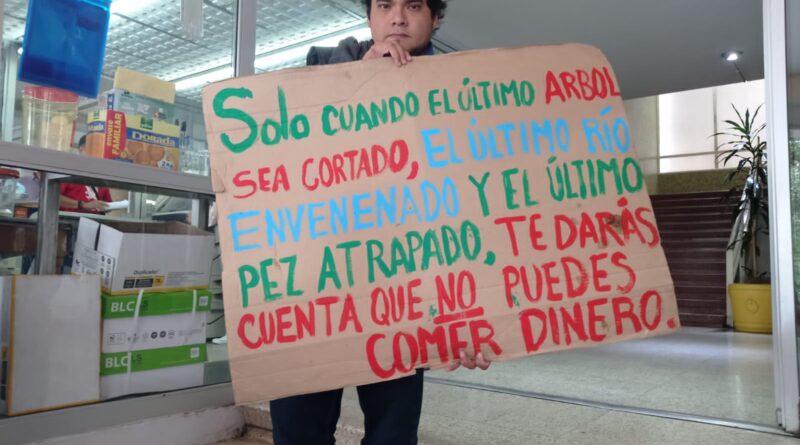 Solo CUANDO EL ÚLTIMO ARBOL
SEA CORTADO, EL ÚLTIMO RÍO
ENVENENADO Y EL ÚLTIMO
PEZ ATRAPADO, TE DARÁS
CUENTA QUE NO PUEDES
COMER DINERO.
envase
FAMILIAR
Dorada
Duplicador
BLC
BLC